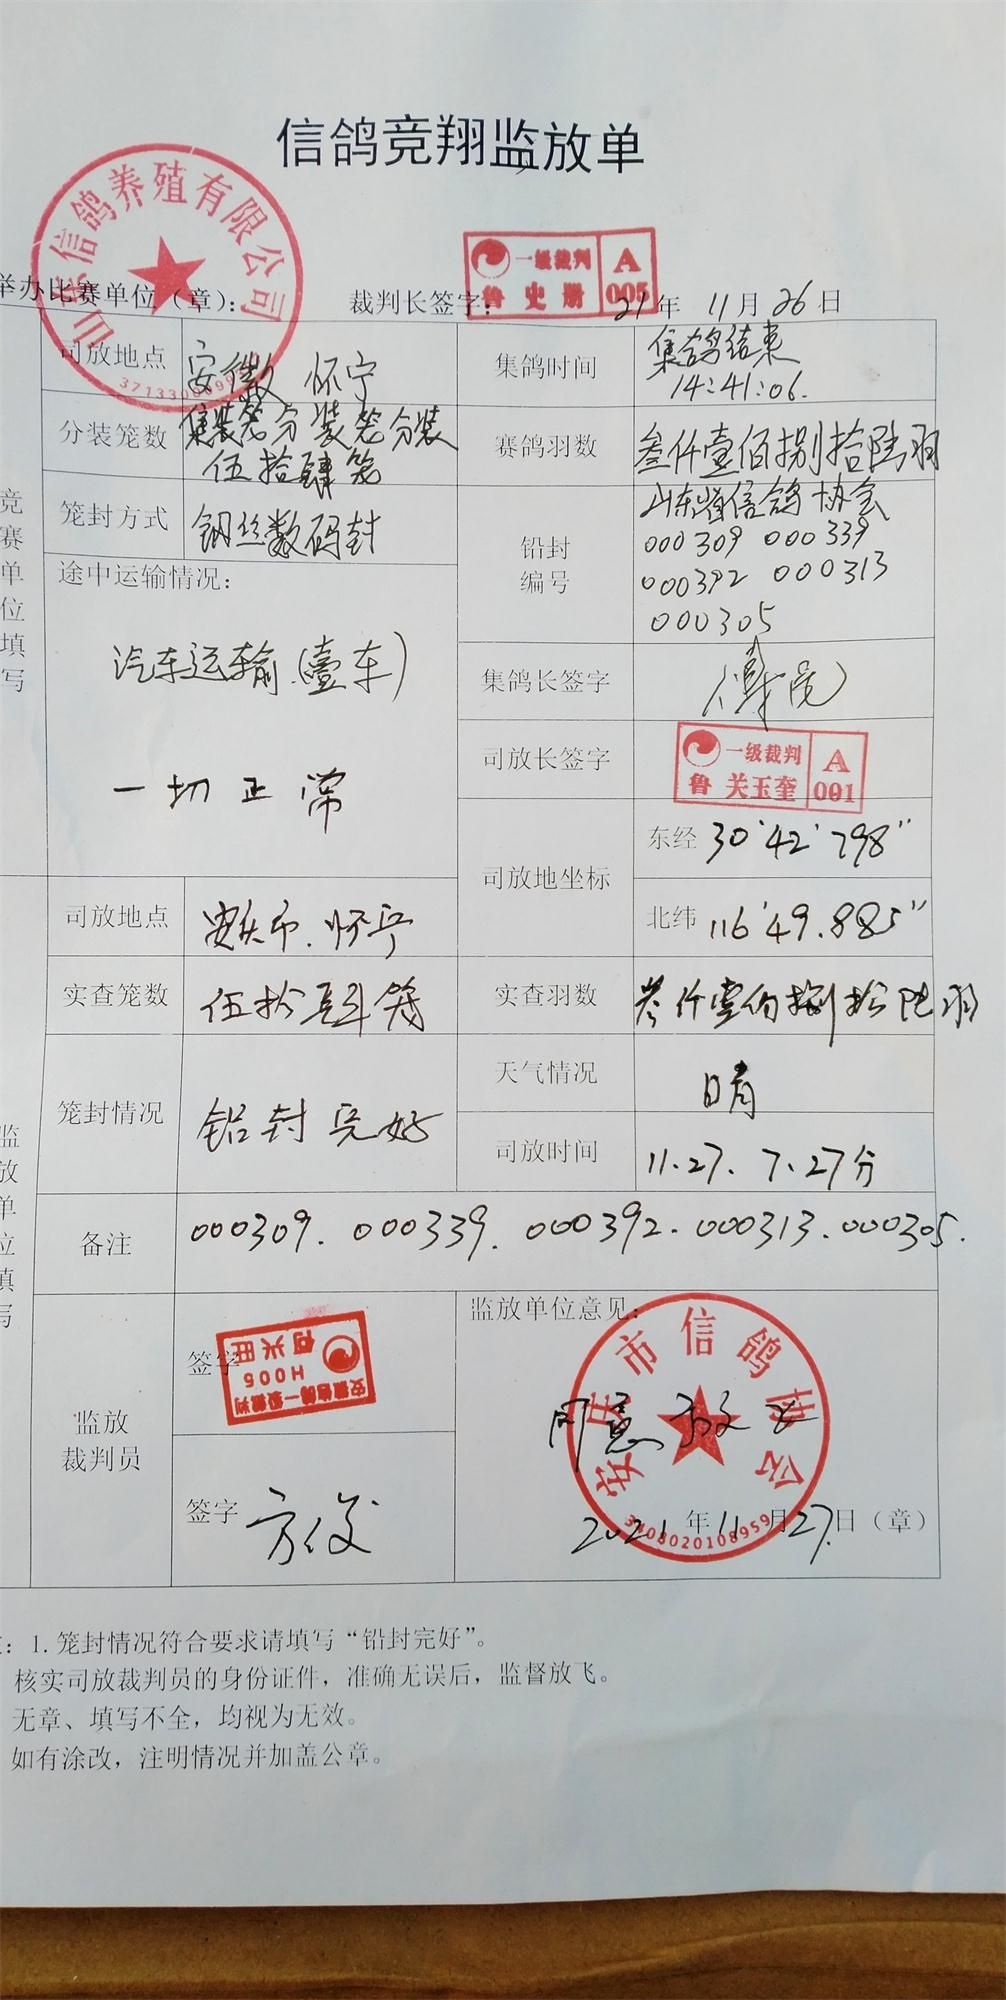 信鸽竞翔监放单
信鸽养殖有限公司
举办比赛单位（章）：
裁判长签字：
一级裁判 A
鲁 史册 005
21年 11月 26日
竞赛单位填写
司放地点 安徽 怀宁
集鸽时间 集鸽结束
14:41:06.
分装笼数 集装笼分装笼分装
伍拾肆笼
赛鸽羽数 叁仟壹佰捌拾陆羽
笼封方式 钢丝数码封
铅封编号 山东省信鸽协会
000309 000339
000392 000313
000305
途中运输情况：
汽车运输（壹车）
一切正常
集鸽长签字
司放长签字
一级裁判 A
鲁 关玉奎 001
司放地坐标
东经 30°42'798"
北纬 116°49.885"
监放单位填写
司放地点 安庆市.怀宁
实查笼数 伍拾肆笼
实查羽数 叁仟壹佰捌拾陆羽
笼封情况 铅封完好
天气情况 晴
司放时间 11.27. 7.27分
备注 000309. 000339. 000392. 000313. 000305.
监放裁判员
签字
安徽信鸽一级裁判
H006
何兴旺
签字 方俊
监放单位意见：
安庆市信鸽协会
同意放飞
3408020108959
2021年11月27日（章）
：1. 笼封情况符合要求请填写“铅封完好”。
核实司放裁判员的身份证件，准确无误后，监督放飞。
无章、填写不全，均视为无效。
如有涂改，注明情况并加盖公章。